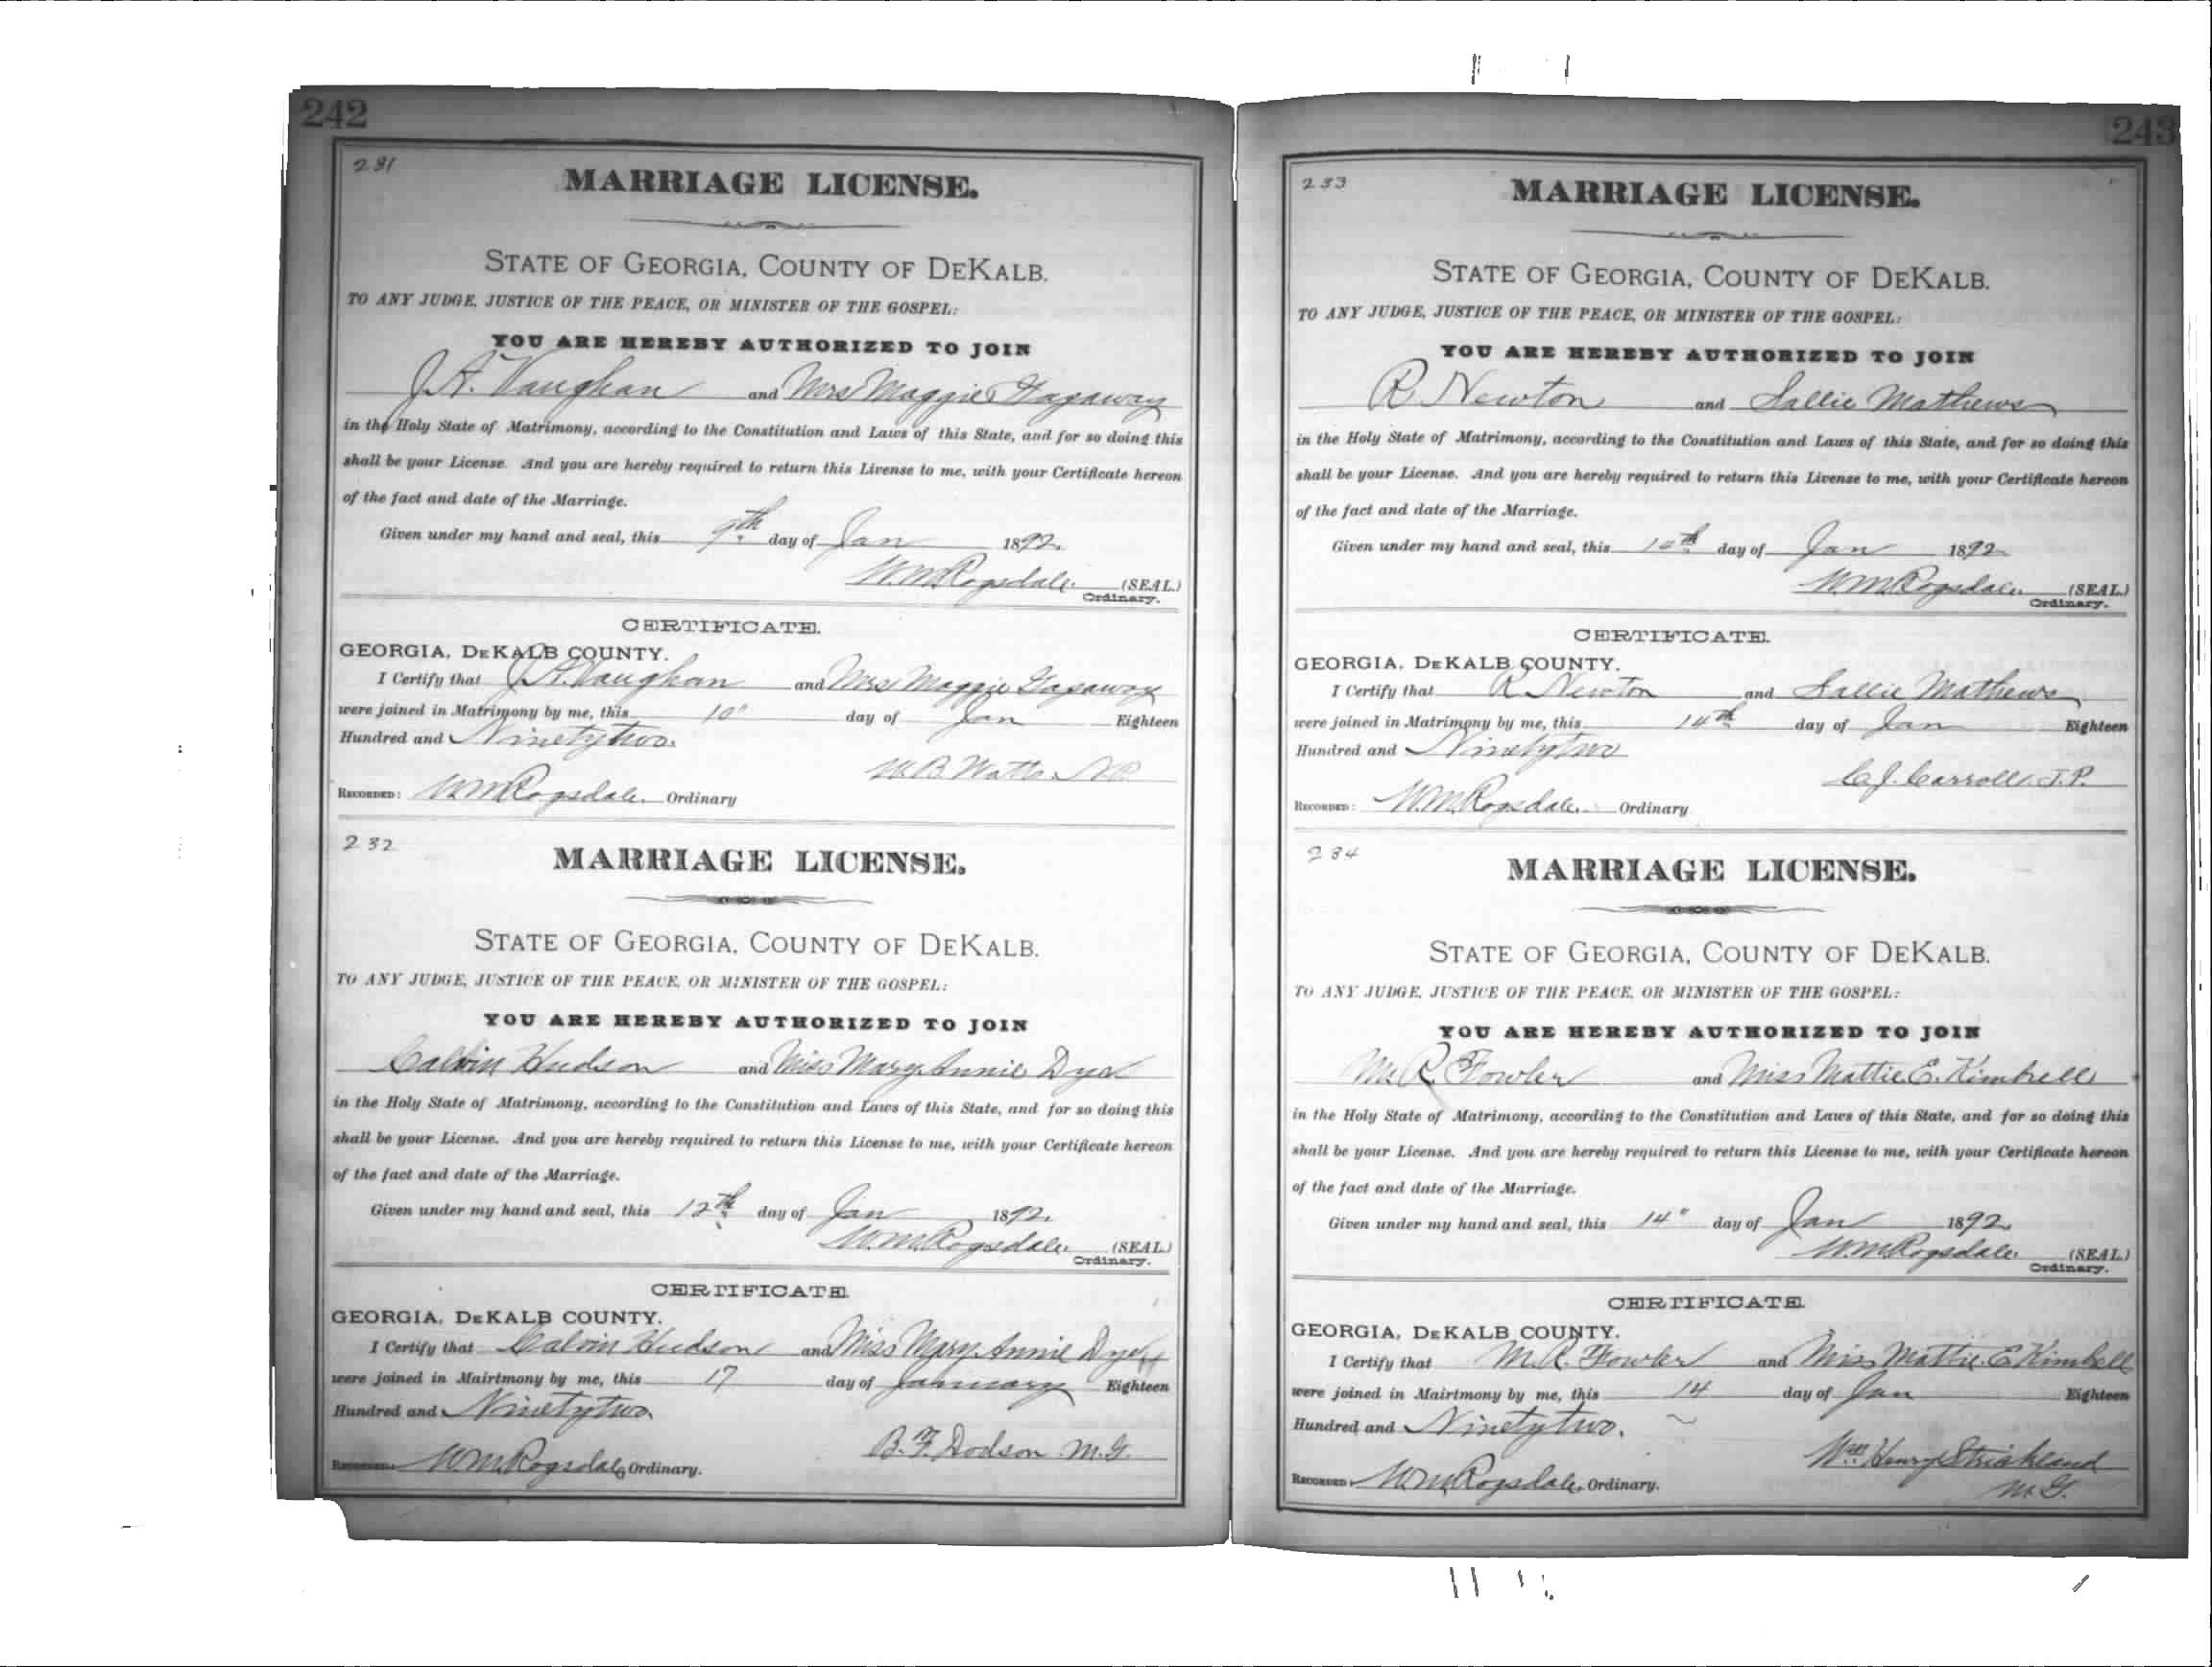 242
231
MARRIAGE LICENSE.
STATE OF GEORGIA, COUNTY OF DEKALB.
TO ANY JUDGE, JUSTICE OF THE PEACE, OR MINISTER OF THE GOSPEL:
YOU ARE HEREBY AUTHORIZED TO JOIN
J.A. Vaughan and Mrs Maggie Gazaway
in the Holy State of Matrimony, according to the Constitution and Laws of this State, and for so doing this
shall be your License. And you are hereby required to return this License to me, with your Certificate hereon
of the fact and date of the Marriage.
Given under my hand and seal, this 9th day of Jan 1892.
W.M. Ragsdale. (SEAL.)
Ordinary.
CERTIFICATE.
GEORGIA, DEKALB COUNTY.
I Certify that J.A. Vaughan and Mrs Maggie Gazaway
were joined in Matrimony by me, this 10" day of Jan Eighteen
Hundred and Ninetytwo.
Watts N.P.
RECORDED: W.M. Ragsdale. Ordinary
232
MARRIAGE LICENSE.
STATE OF GEORGIA, COUNTY OF DEKALB.
TO ANY JUDGE, JUSTICE OF THE PEACE, OR MINISTER OF THE GOSPEL:
YOU ARE HEREBY AUTHORIZED TO JOIN
Calvin Hudson and Miss Mary Annie
in the Holy State of Matrimony, according to the Constitution and Laws of this State, and for so doing this
shall be your License. And you are hereby required to return this License to me, with your Certificate hereon
of the fact and date of the Marriage.
Given under my hand and seal, this 12th day of Jan 1892.
W.M. Ragsdale. (SEAL.)
Ordinary.
CERTIFICATE.
GEORGIA, DEKALB COUNTY.
I Certify that Calvin Hudson and Miss Mary Annie
were joined in Mairtmony by me, this 17 day of January Eighteen
Hundred and Ninetytwo
B.F. Dodson M.G.
RECORDED: W.M. Ragsdale Ordinary.
243
233
MARRIAGE LICENSE.
STATE OF GEORGIA, COUNTY OF DEKALB.
TO ANY JUDGE, JUSTICE OF THE PEACE, OR MINISTER OF THE GOSPEL:
YOU ARE HEREBY AUTHORIZED TO JOIN
R Newton and Sallie Mathews
in the Holy State of Matrimony, according to the Constitution and Laws of this State, and for so doing this
shall be your License. And you are hereby required to return this License to me, with your Certificate hereon
of the fact and date of the Marriage.
Given under my hand and seal, this day of Jan 1892
W.M. Ragsdale. (SEAL.)
Ordinary.
CERTIFICATE.
GEORGIA, DEKALB COUNTY.
I Certify that R Newton and Sallie Mathews
were joined in Matrimony by me, this 14th day of Jan Eighteen
Hundred and Ninetytwo
C.J. Carroll. J.P.
RECORDED: W.M. Ragsdale. Ordinary
234
MARRIAGE LICENSE.
STATE OF GEORGIA, COUNTY OF DEKALB.
TO ANY JUDGE, JUSTICE OF THE PEACE, OR MINISTER OF THE GOSPEL:
YOU ARE HEREBY AUTHORIZED TO JOIN
M.R. Fowler and Miss Mattie E. Kimbrell
in the Holy State of Matrimony, according to the Constitution and Laws of this State, and for so doing this
shall be your License. And you are hereby required to return this License to me, with your Certificate hereon
of the fact and date of the Marriage.
Given under my hand and seal, this 14" day of Jan 1892.
W.M. Ragsdale. (SEAL.)
Ordinary.
CERTIFICATE.
GEORGIA, DEKALB COUNTY.
I Certify that M.R. Fowler and Miss Mattie E Kimbell
were joined in Mairtmony by me, this 14 day of Jan Eighteen
Hundred and Ninetytwo.
Wm Henry Strickland
M.G.
RECORDED: W.M. Ragsdale. Ordinary.